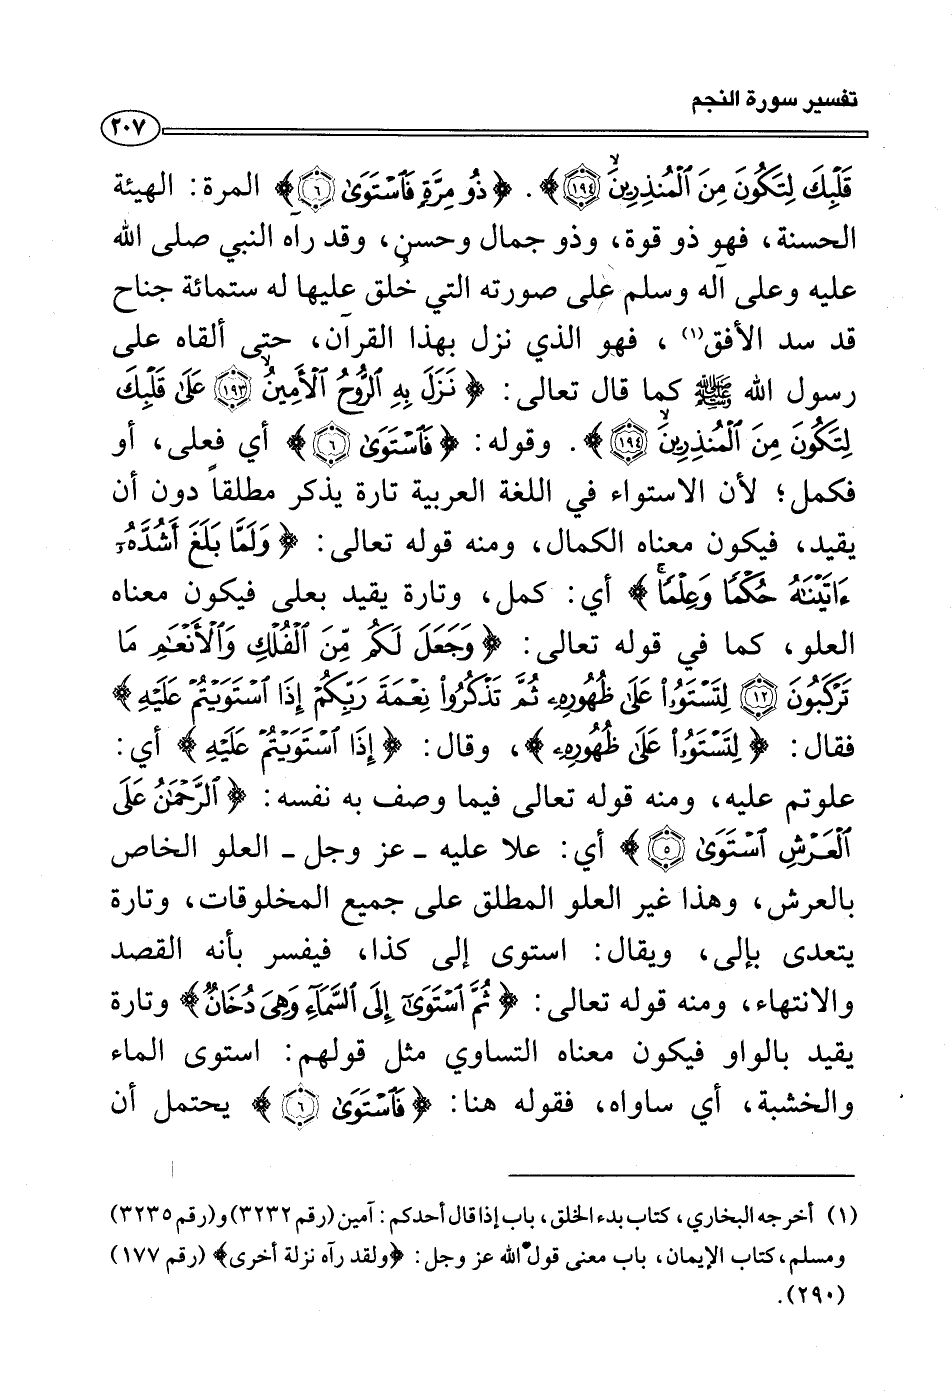 تفسير سورة النجم
٢٠٧
قَلْبِكَ لِتَكُونَ مِنَ ٱلْمُنذِرِينَۙ (١٩٤)﴾. ﴿ذُو مِرَّةٍ فَٱسْتَوَىٰ (٦)﴾ المرة: الهيئة
الحسنة، فهو ذو قوة، وذو جمال وحسن، وقد رآه النبي صلى الله
عليه وعلى آله وسلم على صورته التي خلق عليها له ستمائة جناح
قد سد الأفق(١)، فهو الذي نزل بهذا القرآن، حتى ألقاه على
رسول الله ﷺ كما قال تعالى: ﴿نَزَلَ بِهِ ٱلرُّوحُ ٱلْأَمِينُۙ (١٩٣) عَلَىٰ قَلْبِكَ
لِتَكُونَ مِنَ ٱلْمُنذِرِينَۙ (١٩٤)﴾. وقوله: ﴿فَٱسْتَوَىٰ (٦)﴾ أي فعلى، أو
فكمل؛ لأن الاستواء في اللغة العربية تارة يذكر مطلقاً دون أن
يقيد، فيكون معناه الكمال، ومنه قوله تعالى: ﴿وَلَمَّا بَلَغَ أَشُدَّهُۥٓ
ءَاتَيْنَٰهُ حُكْمًا وَعِلْمًاۚ﴾ أي: كمل، وتارة يقيد بعلى فيكون معناه
العلو، كما في قوله تعالى: ﴿وَجَعَلَ لَكُم مِّنَ ٱلْفُلْكِ وَٱلْأَنْعَٰمِ مَا
تَرْكَبُونَ (١٢) لِتَسْتَوُۥا۟ عَلَىٰ ظُهُورِهِۦ ثُمَّ تَذْكُرُوا۟ نِعْمَةَ رَبِّكُمْ إِذَا ٱسْتَوَيْتُمْ عَلَيْهِ﴾
فقال: ﴿لِتَسْتَوُۥا۟ عَلَىٰ ظُهُورِهِۦ﴾، وقال: ﴿إِذَا ٱسْتَوَيْتُمْ عَلَيْهِ﴾ أي:
علوتم عليه، ومنه قوله تعالى فيما وصف به نفسه: ﴿ٱلرَّحْمَٰنُ عَلَى
ٱلْعَرْشِ ٱسْتَوَىٰ (٥)﴾ أي: علا عليه ـ عز وجل ـ العلو الخاص
بالعرش، وهذا غير العلو المطلق على جميع المخلوقات، وتارة
يتعدى بإلى، ويقال: استوى إلى كذا، فيفسر بأنه القصد
والانتهاء، ومنه قوله تعالى: ﴿ثُمَّ ٱسْتَوَىٰٓ إِلَى ٱلسَّمَآءِ وَهِىَ دُخَانٌ﴾ وتارة
يقيد بالواو فيكون معناه التساوي مثل قولهم: استوى الماء
والخشبة، أي ساواه، فقوله هنا: ﴿فَٱسْتَوَىٰ (٦)﴾ يحتمل أن
(١) أخرجه البخاري، كتاب بدء الخلق، باب إذا قال أحدكم: آمين (رقم ٣٢٣٢) و(رقم ٣٢٣٥)
ومسلم، كتاب الإيمان، باب معنى قول الله عز وجل: ﴿ولقد رآه نزلة أخرى﴾ (رقم ١٧٧)
(٢٩٠).